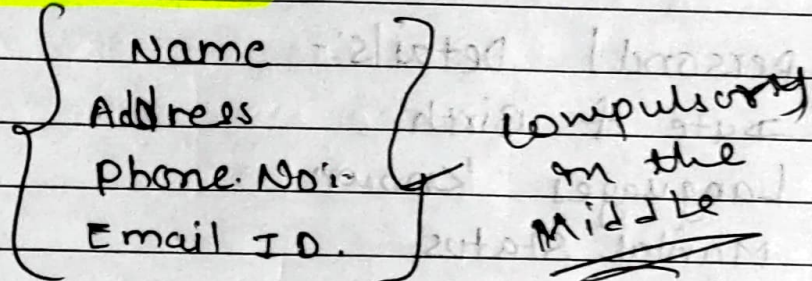 Name
Address
Phone. No:-
Email ID.
Compulsory
in the
Middle